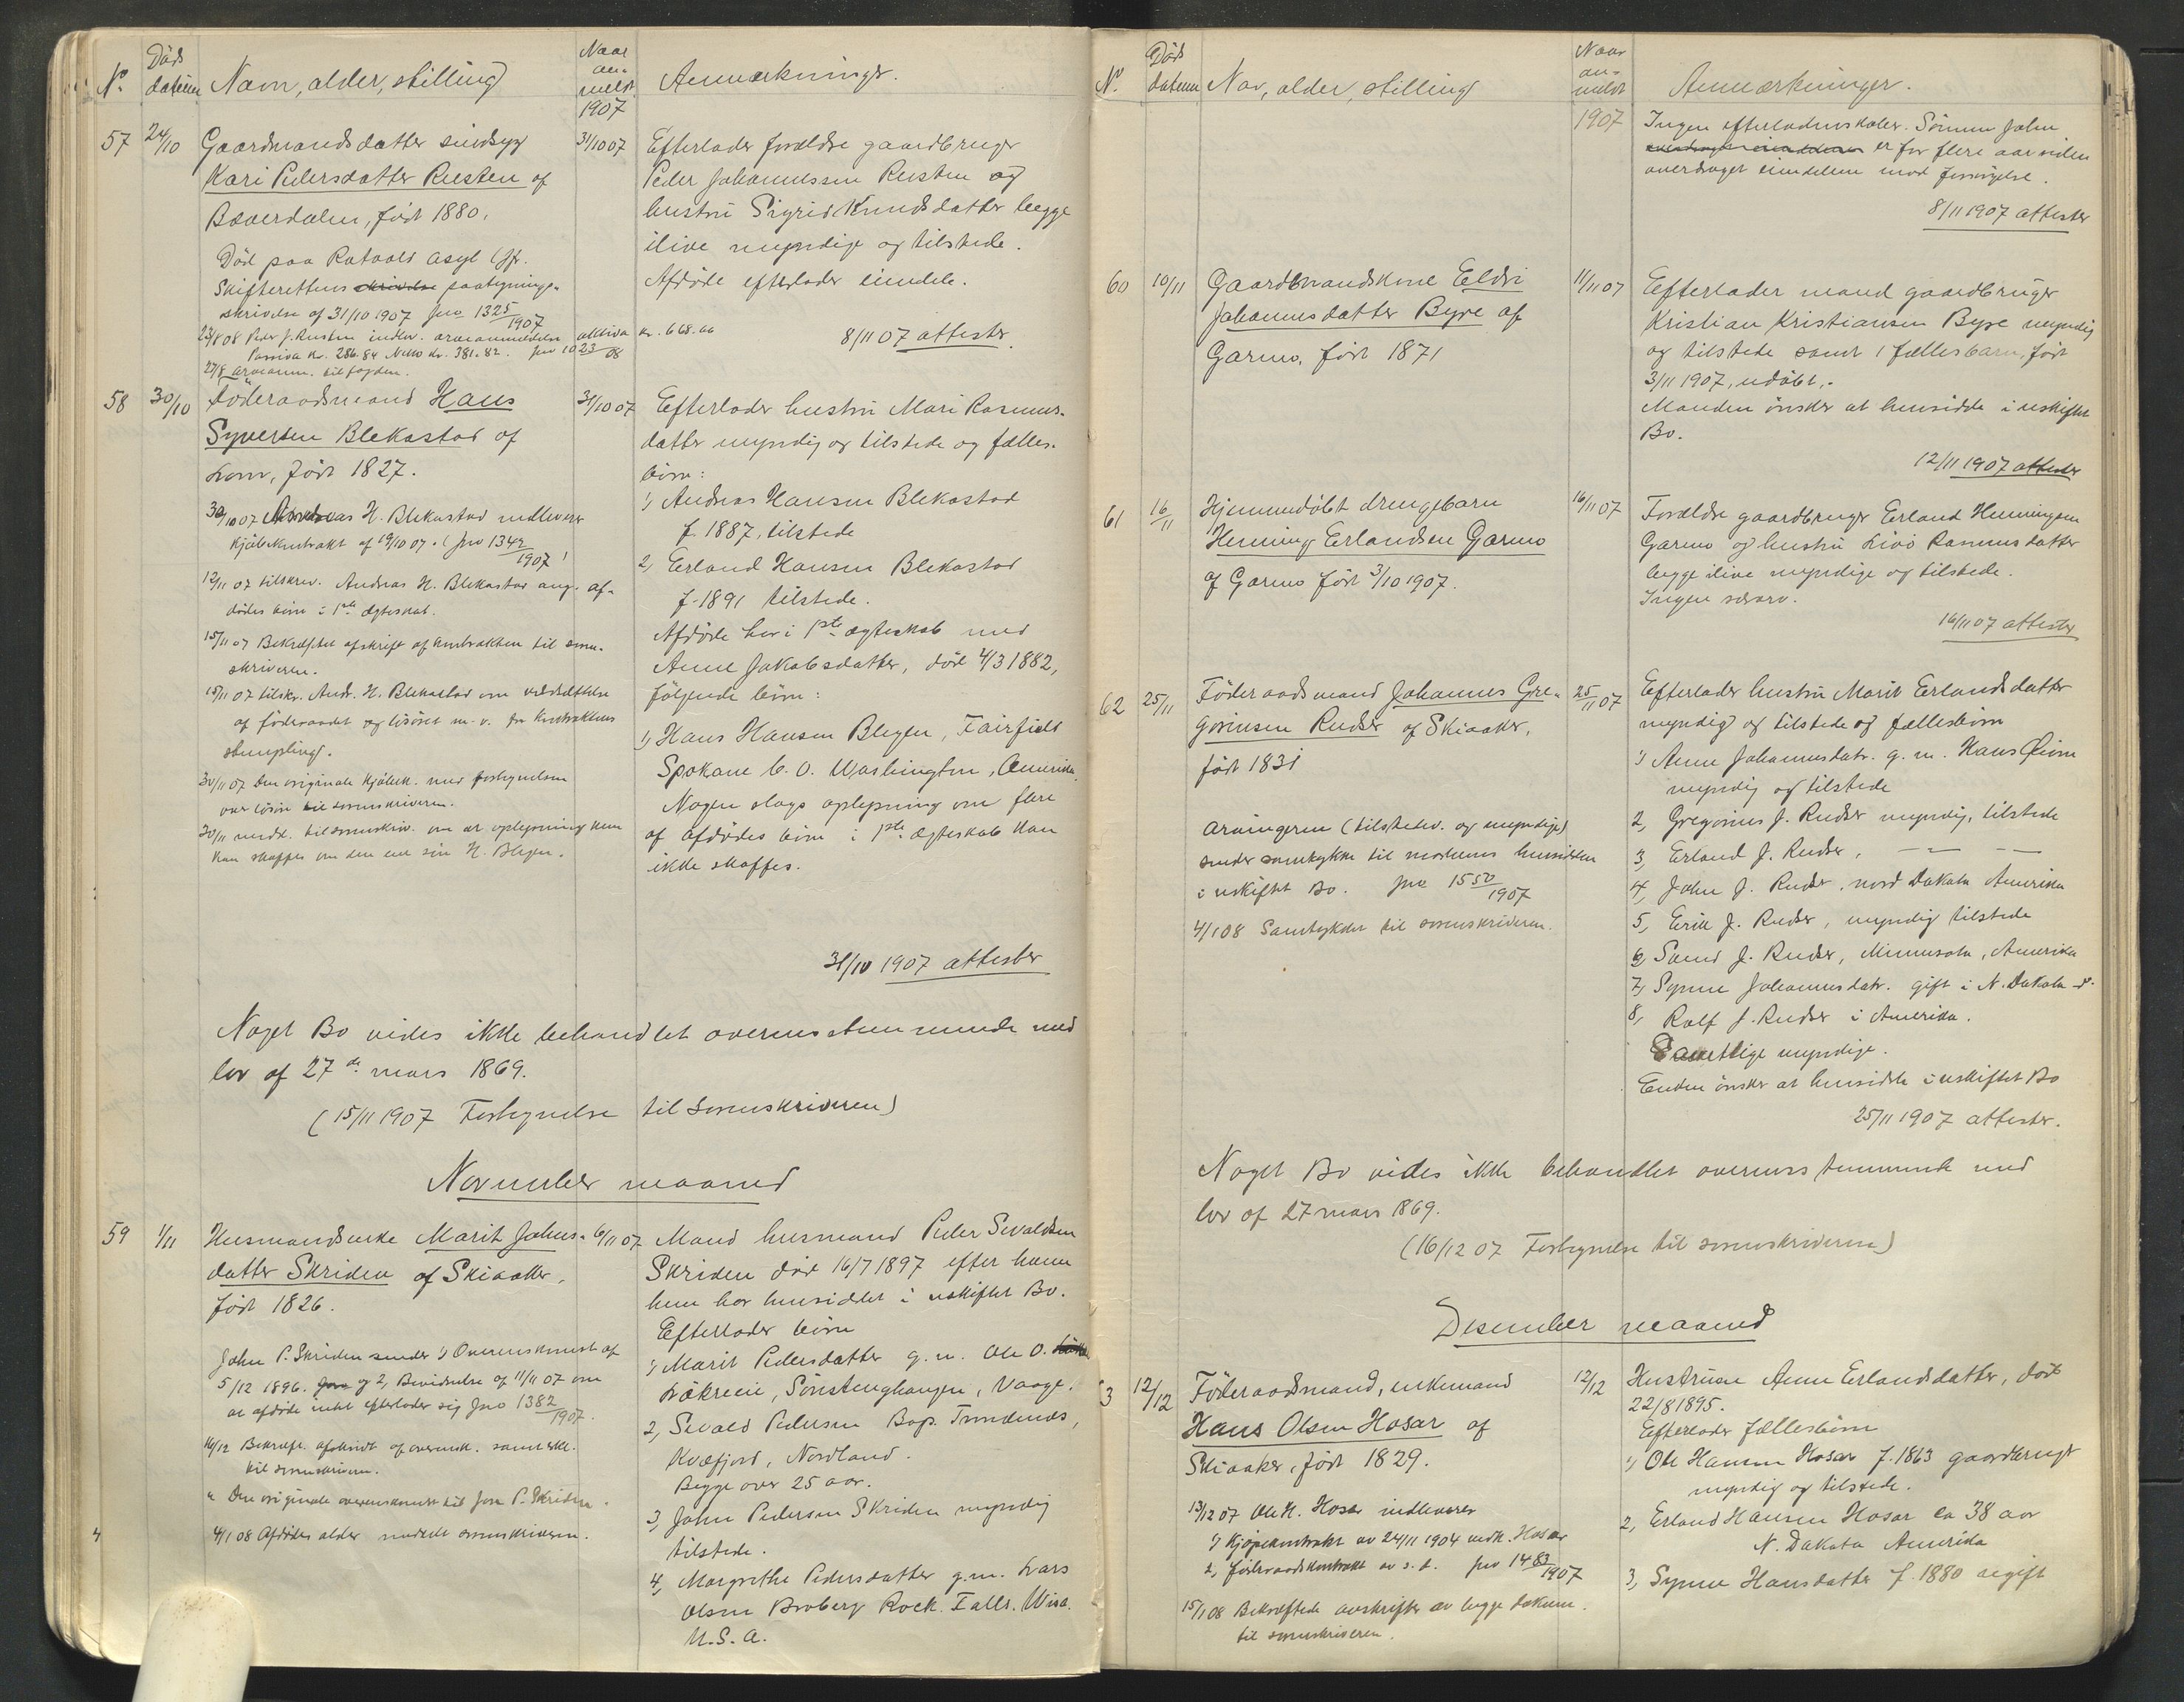 No
Döds
datum
Navn, alder, stilling
Naar
an-
meldt
1907
Anmærkninger.
57
24/10
Gaardmandsdatter sindsyg
Kari Pedersdatter Rusten af
Bæverdalen, født 1880.
Död paa Rotvold Asyl (Jfr.
Skifterettens skrivelse paategnings-
skrivelse af 31/10 1907 Jno 1325/1907
23/8 08 Peder J. Rusten indlev. arveanmeldelse aktiva kr. 668.66
Passiva Kr. 286.84 Netto Kr. 381.82. Jno 1023/08
27/8 arveanm. til fogden.
31/10 07
Efterlader forældre gaardbruger
Peder Johannessen Rusten og
hustru Sigrid Knudsdatter begge
ilive myndige og tilstede.
Afdøde efterlader eiendele.
8/11 07 attester.
58
30/10
Föderaadsmand Hans
Syversen Blekastad af
Lom, født 1827.
30/10 07 Andreas H. Blekastad indleverer
Kjøbekontrakt af 19/10 07. (Jno 1342/1907)
12/11 07 tilskrev. Andreas H. Blekastad ang. af-
dödes börn i 1ste ægteskab.
15/11 07 Bekræftet afskrift af kontrakten til soren-
skriveren.
15/11 07 tilskr. Andr. H. Blekastad om værdsættelse
af föderaadet og lösöret m.v. for kontraktens
stempling.
30/11 07 Den originale kjöbek. med fortegnelsen
over lösöre til sorenskriveren.
30/11 medd. til sorenskriv. om at oplysning kun
kan skaffes om den ene sön H. Blegen.
31/10 07
Efterlader hustru Mari Rasmus-
datter myndig og tilstede og fælles-
börn:
1, Andreas Hansen Blekastad
f. 1887, tilstede
2, Erland Hansen Blekastad
f. 1891 tilstede.
Afdöde har i 1ste ægteskab med
Anne Jakobsdatter, död 4/3 1882,
følgende börn:
1, Hans Hansen Blegen, Fairfield
Spokane C. O. Washington, Amerika.
Nogen slags oplysning om flere
af afdödes börn i 1ste ægteskab kan
ikke skaffes.
31/10 1907 attester
Noget Bo vides ikke behandlet overensstemmende med
lov af 27de mars 1869.
(15/11 1907 Fortegnelse til Sorenskriveren)
November maaned
59
1/11
Husmandsenke Marit Johns-
datter Skriden af Skiaaker,
født 1826.
John P. Skriden sender 1, Overenskomst af
5/12 1896. Jno og 2, Bevidnelse af 11/11 07 om
at afdöde intet efterlader sig Jno 1382/1907.
16/12 Bekræft. afskrift af overensk. samt erkl.
til sorenskriveren.
" Den originale overenskomst til John P. Skriden.
4/1 08 Afdödes alder meddelt sorenskriveren.
6/11 07
Mand husmand Peder Sevaldsen
Skriden död 16/7 1897 efter hvem
hun har hensiddet i uskiftet Bo.
Efterlader börn
1, Marit Pedersdatter g. m. Ole O.
Lökreeie, Sönstenghaugen, Vaage.
2, Sevald Pedersen Bop. Trondenæs,
Kvæfjord, Nordland.
Begge over 25 aar.
3, John Pedersen Skriden myndig
tilstede.
4, Margrethe Pedersdatter g.m. Lars
Olsen Broberg Rock. Falls. Wisc.
U.S.A.
No
Död
datum
Nav, alder, stilling
Naar
an-
meldt
1907
Anmærkninger.
Ingen efterladenskaber. Sönnen John
er for flere aar siden
overdraget eiendelene mod forsörgelse.
8/11 1907 attester
60
10/11
Gaardmandskone Eldri
Johannesdatter Byre af
Garmo, født 1871
11/11 07
Efterlader mand gaardbruger
Kristian Kristiansen Byre myndig
og tilstede samt 1 fællesbarn, født
3/11 1907, udöbt.
Manden önsker at hensidde i uskiftet
Bo.
12/11 1907 attester
61
16/11
Hjemmedöbt drengebarn
Henning Erlandsen Garmo
af Garmo født 3/10 1907.
16/11 07
Forældre gaardbruger Erland Henningsen
Garmo og hustru Livö Rasmusdatter
begge ilive myndige og tilstede.
Ingen særarv.
16/11 07 attester
62
25/11
Föderaadsmand Johannes Gre-
goriusen Rudser af Skiaaker,
født 1831
Arvingerne (tilstedev. og myndige)
sender samtykke til moderens hensidden
i uskiftet Bo. Jno 1550/1907
4/1 08 Samtykket til sorenskriveren.
25/11 07
Efterlader hustru Marit Erlandsdatter
myndig og tilstede og fællesbörn
1, Anne Johannesdatr. g. m. Hans Öien
myndig og tilstede
2, Gregorius J. Rudser myndig, tilstede
3, Erland J. Rudser, — " —
4, John J. Rudser, nord Dakota Amerika
5, Erik J. Rudser, myndig tilstede
6, Sven J. Rudser, Minnesota, Amerika
7, Synne Johannesdatr. gift i N. Dakota
8, Rolf J. Rudser i Amerika.
Samtlige myndige.
Enken önsker at hensidde i uskiftet Bo
25/11 1907 attester.
Noget Bo vides ikke behandlet overensstemmende med
lov af 27 mars 1869.
(16/12 07 Fortegnelse til sorenskriveren)
Desember maaned
3
12/12
Föderaadsmand, enkemand
Hans Olsen Hosar af
Skiaaker, født 1829.
13/12 07 Ole H. Hosar indleverer
1, Kjøpekontrakt av 24/11 1904 vedk. Hosar
2, föderaadskontrakt av s. d. Jno 1483/1907
15/1 08 Bekræftede avskrifter av begge dokum.
til sorenskriveren.
12/12
Hustruen Anne Erlandsdatter, död
22/8 1895.
Efterlader fællesbörn
1, Ole Hansen Hosar f. 1863 gaardbruger
myndig og tilstede.
2, Erland Hansen Hosar ca 38 aar
N. Dakota Amerika
3, Synne Hansdatter f. 1880 ugift